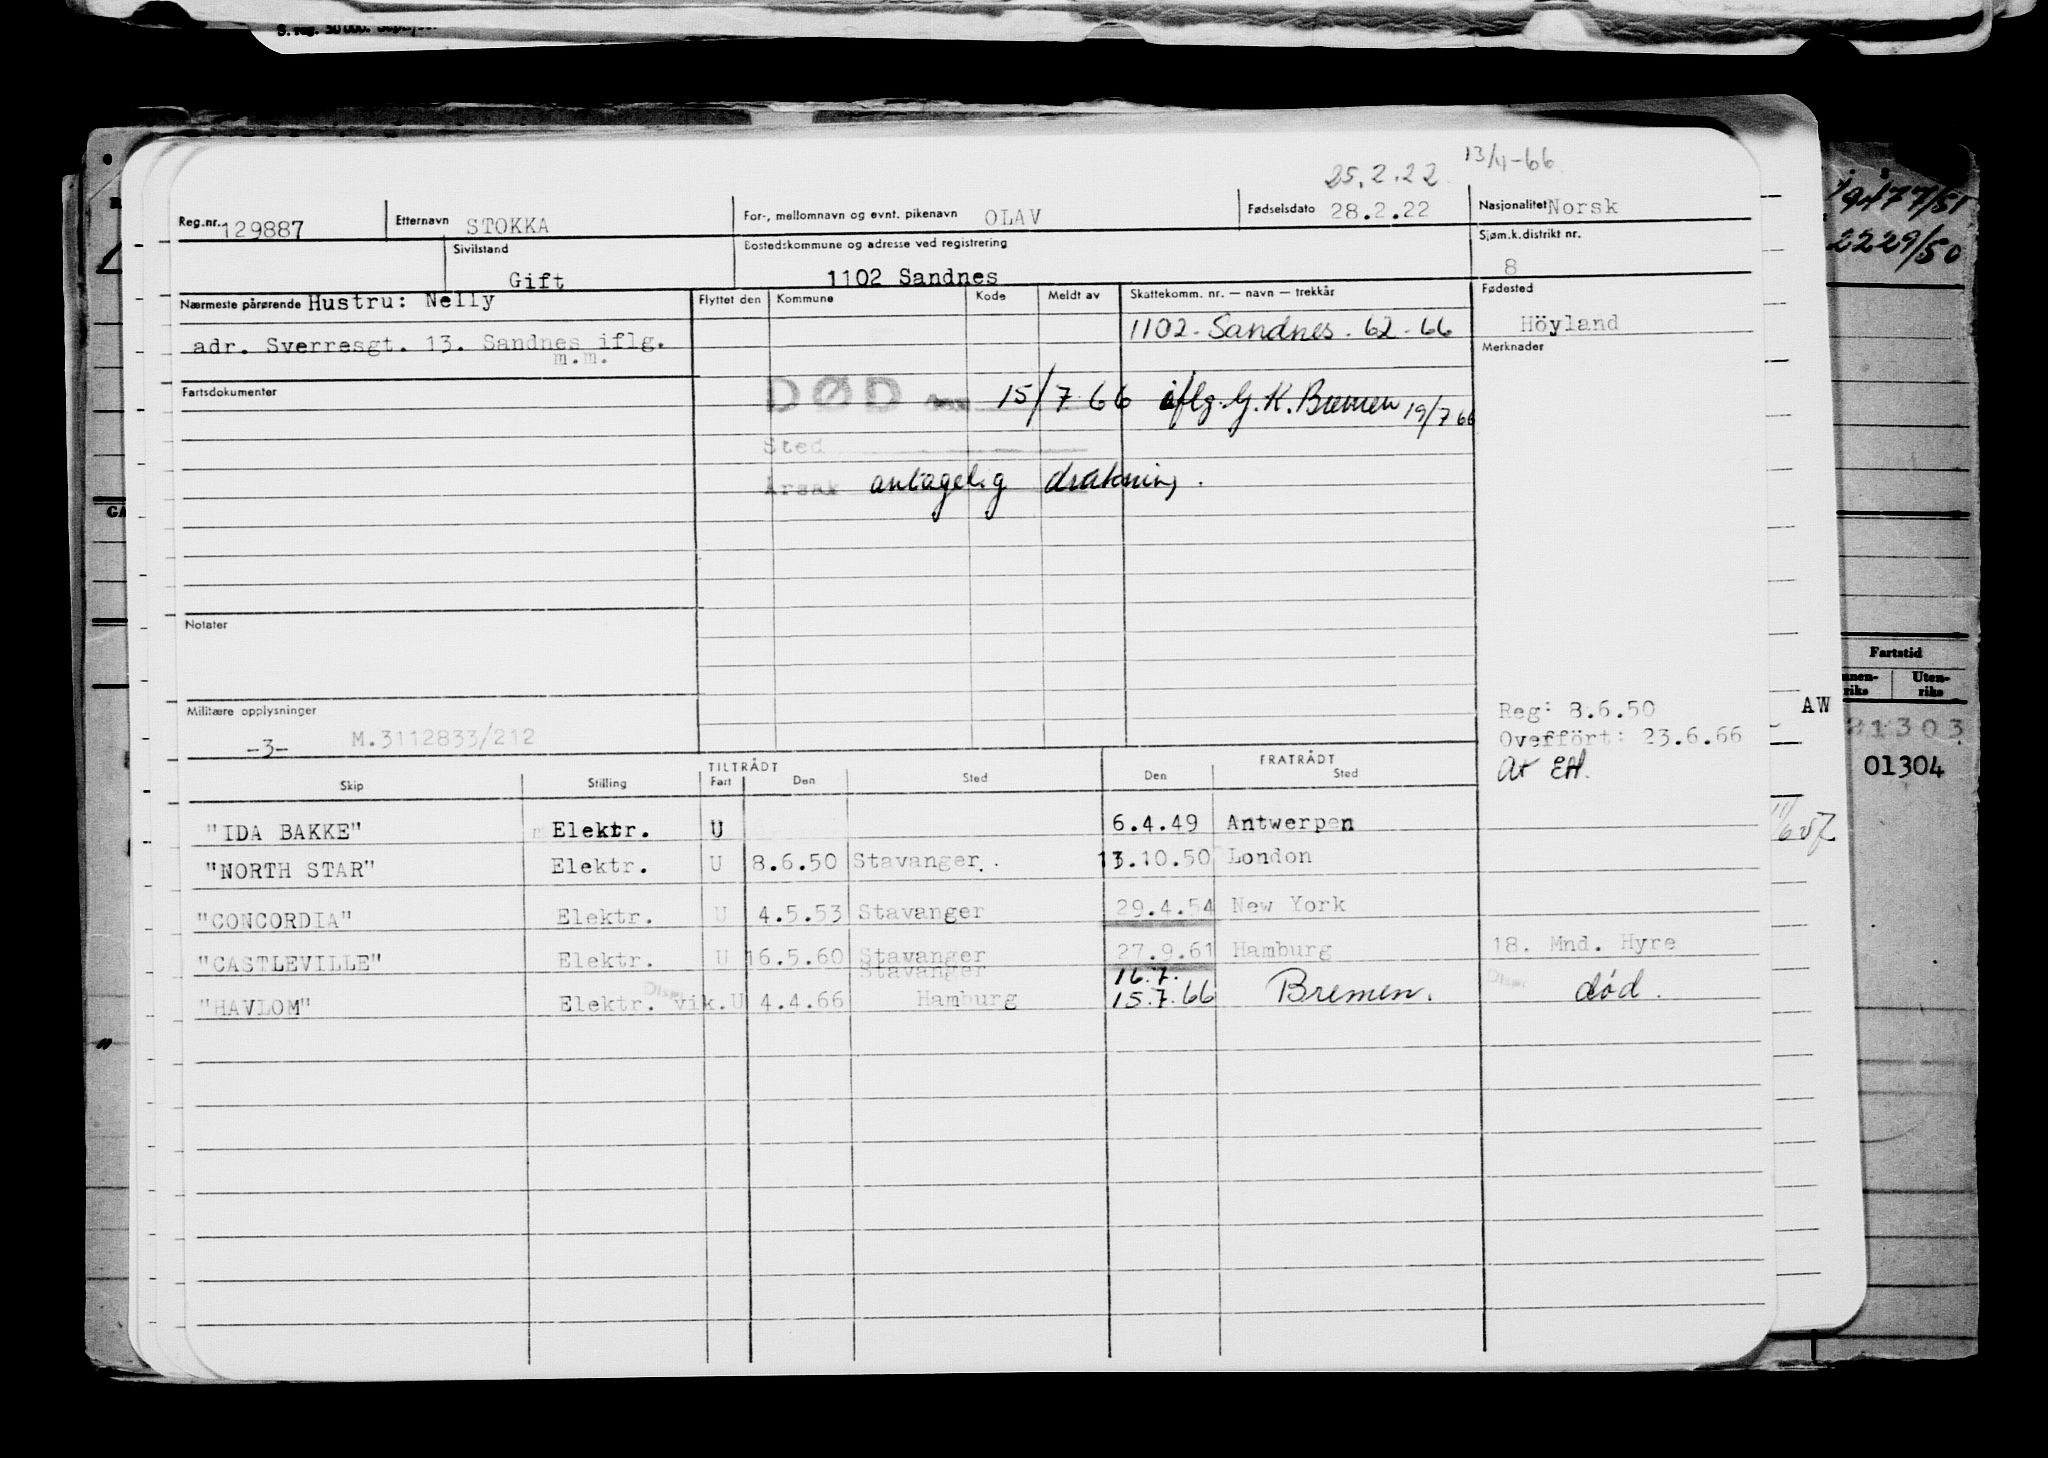 25.2.22 13/4-66
Reg.nr. 129887 Etternavn STOKKA For-, mellomnavn og evnt. pikenavn OLAV Fødselsdato 28.2.22 Nasjonalitet Norsk
19477/51
2229/50
Sivilstand Gift Bostedskommune og adresse ved registrering 1102 Sandnes Sjøm.k.distrikt nr. 8
Nærmeste pårørende Hustru: Nelly Flyttet den Kommune Kode Meldt av Skattekomm. nr. — navn — trekkår Fødested
adr. Sverresgt. 13. Sandnes iflg. 1102 - Sandnes. 62 - 66 Höyland
m.m. Merknader
Fartsdokumenter DØD 15/7 66 iflg. G.K. Bremen 19/7 66
Sted
Årsak antagelig drukning.
Notater
Fartstid
Uten-
riks
Militære opplysninger Reg: 8.6.50 AW
-3- M.3112833/212 Overfört: 23.6.66 01303
At EH. 01304
TILTRÅDT FRATRÅDT
Skip Stilling Fart Den Sted Den Sted
"IDA BAKKE" Elektr. U 6.4.49 Antwerpen
"NORTH STAR" Elektr. U 8.6.50 Stavanger. 13.10.50 London
"CONCORDIA" Elektr. U 4.5.53 Stavanger 29.4.54 New York
"CASTLEVILLE" Elektr. U 16.5.60 Stavanger 27.9.61 Hamburg 18. Mnd. Hyre
Stavanger 16.7.
"HAVLOM" Elektr. vik. U 4.4.66 Hamburg 15.7.66 Bremen. død.